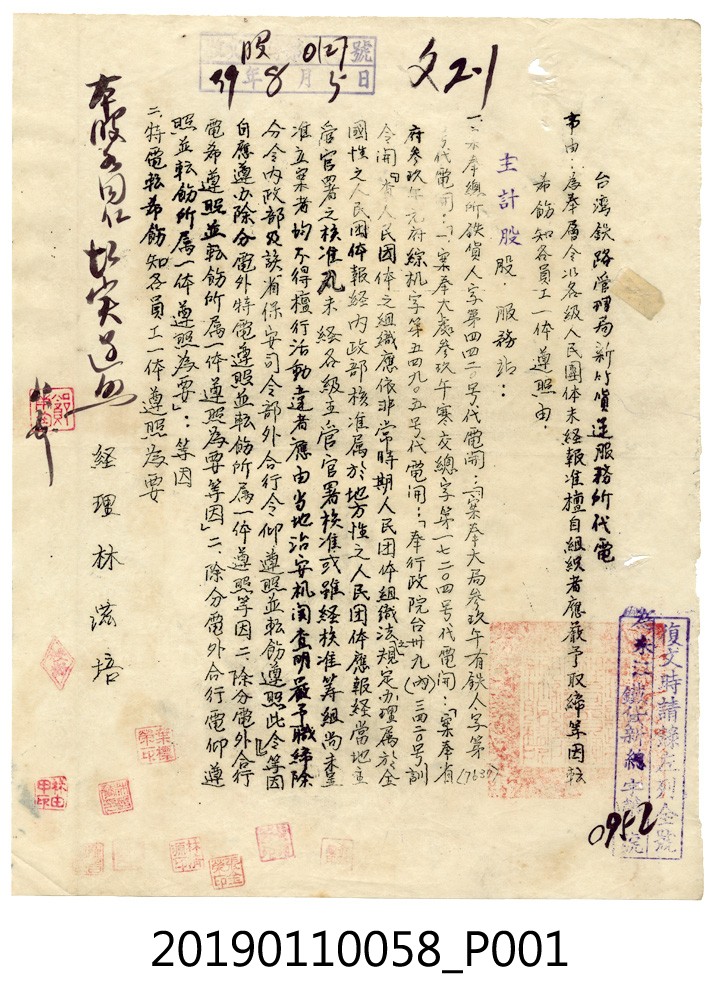 台湾鉄路管理局新竹貨運服務所代電
事由:為奉層令以各級人民團体未経報准擅自組织者應嚴予取締等因転
希飭知各員工一体遵照由.
主計股股.服務站:
一、奉總所鉄貨人字第四四二〇号代電開:「案奉大局參玖午有鉄人字第(7639)
号代電開:「一、案奉大處參玖午寒交總字第一七二〇四号代電開:「案奉省
府參玖午元府綜机字第五四九五号代電開:「奉行政院台卅九(內)三四二〇号訓
令開「查人民団体之組織應依非常時期人民団体組織法之規定办理属於全
國性之人民団体報経内政部核准属於地方性之人民団体應報経當地主
管官署之核准凡未経各級主管官署核准或雖経核准籌組尚未呈
准立案者均不得擅行活動違者應由当地治安机関查明嚴予取締除
分令内政部及該省保安司令部外合行令仰遵照並転飭遵照此令等因
自應遵办除分電外特電遵照並転飭所属一体遵照等因二、除分電外合行
電希遵照並転飭所属一体遵照為要等因」二、除分電外合行電仰遵
照並転飭所属一体遵照為要」:等因
二、特電転希飭知各員工一体遵照為要
経理林澄培
股 0127 號
39年8月5日
文2-1
復文時請錄左列全號
鐵貨新總字第 號
0952
20190110058_P001